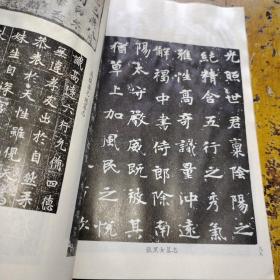 光照世君稟陰陽之
純精含五行之秀氣
雅性高奇識量沖遠
解褐中書侍郎除南
陽太守嚴威既被其
猶草上加風民之悅
張黑女墓志
高遠六行允備四德
無違孝友出於自然
恭於天性雖倪天
妹生自深